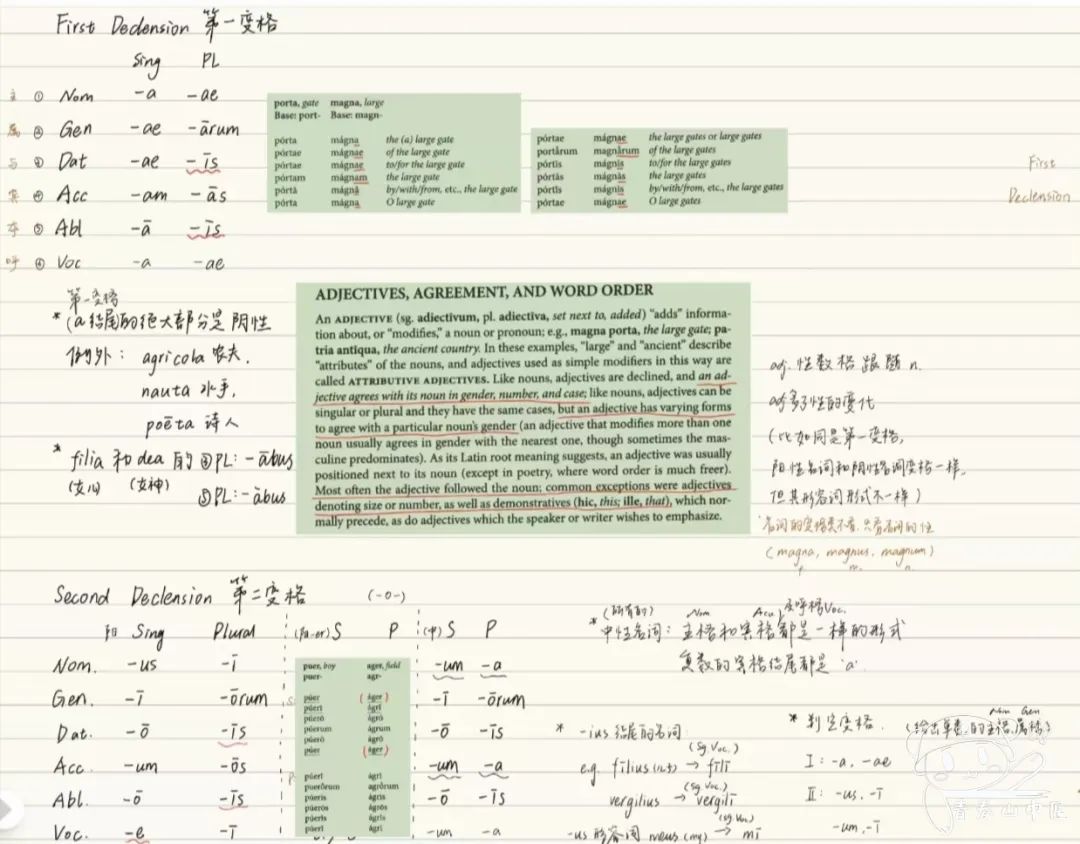 First Declension 第一变格
Sing PL
主 ① Nom -a -ae
属 ② Gen -ae -ārum
与 ③ Dat -ae -īs
宾 ④ Acc -am -ās
夺 ⑤ Abl -ā -īs
呼 ⑥ Voc -a -ae
porta, gate magna, large
Base: port- Base: magn-
pórta mágna the (a) large gate
pórtae mágnae of the large gate
pórtae mágnae to/for the large gate
pórtam mágnam the large gate
pórtā mágnā by/with/from, etc., the large gate
pórta mágna O large gate
pórtae mágnae the large gates or large gates
portā́rum magnā́rum of the large gates
pórtīs mágnīs to/for the large gates
pórtās mágnās the large gates
pórtīs mágnīs by/with/from, etc., the large gates
pórtae mágnae O large gates
First
Declension
第一变格
* (a结尾的绝大部分是阴性
例外: agricola 农夫,
nauta 水手,
poēta 诗人
* filia 和 dea 的 ③PL: -ābus
(女儿) (女神) ⑤PL: -ābus
ADJECTIVES, AGREEMENT, AND WORD ORDER
An ADJECTIVE (sg. adiectīvum, pl. adiectīva, set next to, added) "adds" informa-
tion about, or "modifies," a noun or pronoun; e.g., magna porta, the large gate; pa-
tria antīqua, the ancient country. In these examples, "large" and "ancient" describe
"attributes" of the nouns, and adjectives used as simple modifiers in this way are
called ATTRIBUTIVE ADJECTIVES. Like nouns, adjectives are declined, and an ad-
jective agrees with its noun in gender, number, and case; like nouns, adjectives can be
singular or plural and they have the same cases, but an adjective has varying forms
to agree with a particular noun's gender (an adjective that modifies more than one
noun usually agrees in gender with the nearest one, though sometimes the mas-
culine predominates). As its Latin root meaning suggests, an adjective was usually
positioned next to its noun (except in poetry, where word order is much freer).
Most often the adjective followed the noun; common exceptions were adjectives
denoting size or number, as well as demonstratives (hic, this; ille, that), which nor-
mally precede, as do adjectives which the speaker or writer wishes to emphasize.
adj. 性数格 跟随 n.
adj多了性的变化
(比如同是第一变格,
阳性名词和阴性名词变格一样,
但其形容词形式不一样)
名词的变格类不看,只看名词的性
(magna, magnus, magnum)
f. m. n.
Second Declension 第二变格 (-o-)
阳 Sing Plural S P (中) S P
Nom. -us -ī -um -a
Gen. -ī -ōrum -ī -ōrum
Dat. -ō -īs -ō -īs
Acc. -um -ōs -um -a
Abl. -ō -īs -ō -īs
Voc. -e -ī -um -a
puer, boy ager, field
puer- agr-
púer (áger)
púerī ágrī
púerō ágrō
púerum ágrum
púerō ágrō
púer (áger)
púerī ágrī
puerṓrum agrṓrum
púerīs ágrīs
púerōs ágrōs
púerīs ágrīs
púerī ágrī
(所有的) Nom Acu 及呼格Voc.
* 中性名词: 主格和宾格都是一样的形式
复数的宾格结尾都是 'a'
* -ius 结尾的名词
(sg. Voc.)
e.g. fīlius → fīlī
(sg. Voc.)
vergilius → vergilī
(sg. Voc.)
-us 形容词 meus (my) → mī
* 判定变格.
Nom Gen
I: -a, -ae
II: -us, -ī
-um, -ī
青春山中医